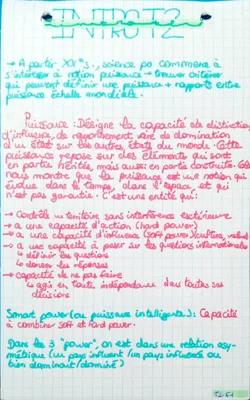 INTRO T2
→ A partir XXe s, science po commence à
s'intéresser à notion puissance → trouver critères
qui peuvent définir une puissance + rapports entre
puissance échelle mondiale.
Puissance : Désigne la capacité de distinction
d'influence, de rayonnement voire de domination
d'un État sur les autres États du monde. Cette
puissance repose sur des éléments qui sont
en partie hérités, mais aussi en partie construits. Cela
nous montre que la puissance est une notion qui
évolue dans le temps, dans l'espace, et qui
n'est pas garantie. C'est une entité qui :
→ Contrôle un territoire sans interférence extérieure
→ a une capacité d'action (hard power)
→ a une capacité d'influence (soft power)
→ a une capacité à peser sur les questions internationales
↳ définir les questions
↳ donner les réponses
→ capacité de ne pas faire
↳ agir en toute indépendance dans toutes ses
décisions
Smart power (ou puissance intelligente) : Capacité
à combiner soft et hard power.
Dans les 3 "power", on est dans une relation asy-
métrique (un pays influent / un pays influencé ou
bien dominant/dominé)